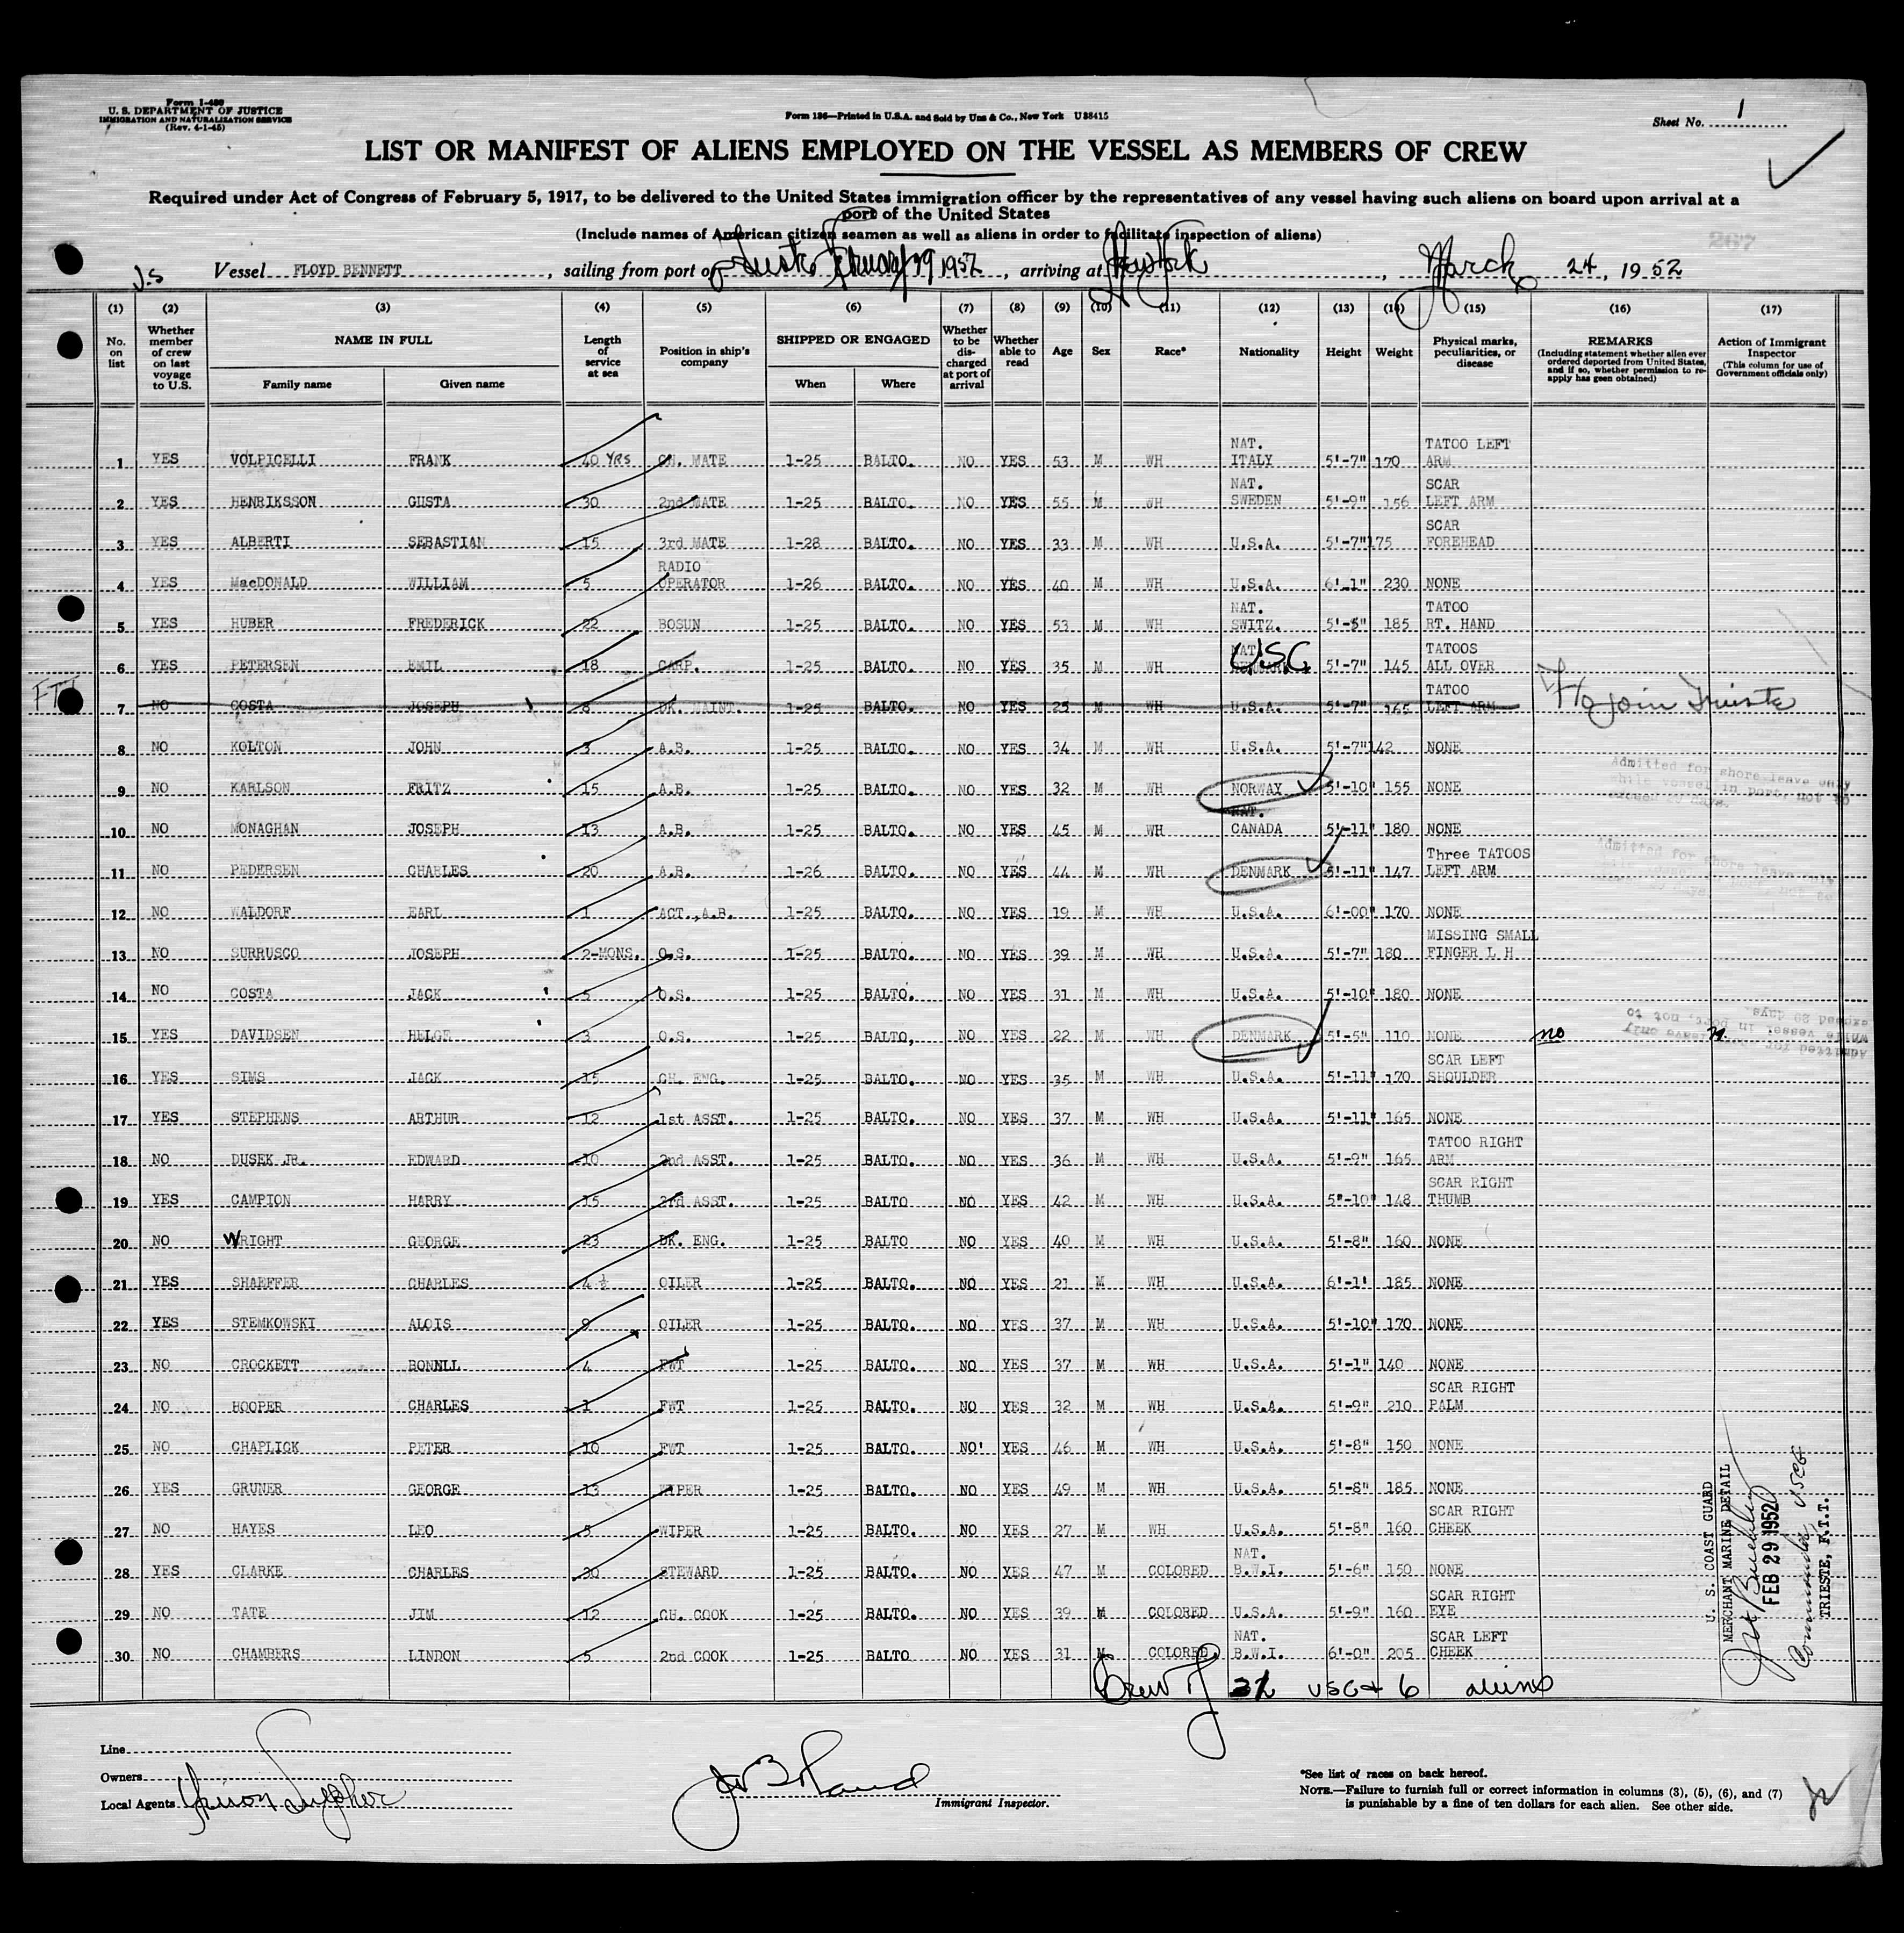 Form I-480
U. S. DEPARTMENT OF JUSTICE
IMMIGRATION AND NATURALIZATION SERVICE
(Rev. 4-1-45)
Form 136—Printed in U.S.A. and Sold by Unz & Co., New York U 88415
Sheet No. 1
LIST OR MANIFEST OF ALIENS EMPLOYED ON THE VESSEL AS MEMBERS OF CREW
Required under Act of Congress of February 5, 1917, to be delivered to the United States immigration officer by the representatives of any vessel having such aliens on board upon arrival at a
port of the United States
(Include names of American citizen seamen as well as aliens in order to facilitate inspection of aliens)
267
Vessel FLOYD BENNETT, sailing from port of Trieste February 29 1952, arriving at New York, March 24, 1952
(1) (2) (3) (4) (5) (6) (7) (8) (9) (10) (11) (12) (13) (14) (15) (16) (17)
No. on list
Whether member of crew on last voyage to U.S.
NAME IN FULL
Family name Given name
Length of service at sea
Position in ship's company
SHIPPED OR ENGAGED
When Where
Whether to be discharged at port of arrival
Whether able to read
Age Sex Race* Nationality Height Weight
Physical marks, peculiarities, or disease
REMARKS
(Including statement whether alien ever ordered deported from United States, and if so, whether permission to re-apply has geen obtained)
Action of Immigrant Inspector
(This column for use of Government officials only)
1 YES VOLPICELLI FRANK 40 YRS CH. MATE 1-25 BALTO. NO YES 53 M WH NAT. ITALY 5'-7" 170 TATOO LEFT ARM
2 YES HENRIKSSON GUSTA 30 2nd MATE 1-25 BALTO. NO YES 55 M WH NAT. SWEDEN 5'-9" 156 SCAR LEFT ARM
3 YES ALBERTI SEBASTIAN 15 3rd MATE 1-28 BALTO. NO YES 33 M WH U.S.A. 5'-7" 175 SCAR FOREHEAD
4 YES MacDONALD WILLIAM 5 RADIO OPERATOR 1-26 BALTO. NO YES 40 M WH U.S.A. 6'-1" 230 NONE
5 YES HUBER FREDERICK 22 BOSUN 1-25 BALTO. NO YES 53 M WH NAT. SWITZ. 5'-5" 185 TATOO RT. HAND
6 YES PETERSEN EMIL 18 CARP. 1-25 BALTO. NO YES 35 M WH NAT. USC 5'-7" 145 TATOOS ALL OVER
7 NO COSTA JOSEPH 8 DK. MAINT. 1-25 BALTO. NO YES 25 M WH U.S.A. 5'-7" 165 TATOO LEFT ARM join Trieste
8 NO KOLTON JOHN 3 A.B. 1-25 BALTO. NO YES 34 M WH U.S.A. 5'-7" 142 NONE
9 NO KARLSON FRITZ 15 A.B. 1-25 BALTO. NO YES 32 M WH NORWAY 5'-10" 155 NONE
Admitted for shore leave only
while vessel in port, not to
exceed 29 days.
10 NO MONAGHAN JOSEPH 13 A.B. 1-25 BALTO. NO YES 45 M WH NAT. CANADA 5'-11" 180 NONE
11 NO PEDERSEN CHARLES 20 A.B. 1-26 BALTO. NO YES 44 M WH DENMARK 5'-11" 147 Three TATOOS LEFT ARM
Admitted for shore leave only
while vessel in port, not to
exceed 29 days.
12 NO WALDORF EARL 1 ACT. A.B. 1-25 BALTO. NO YES 19 M WH U.S.A. 6'-00" 170 NONE
13 NO SURRUSCO JOSEPH 2-MONS. O.S. 1-25 BALTO. NO YES 39 M WH U.S.A. 5'-7" 180 MISSING SMALL FINGER L H
14 NO COSTA JACK 5 O.S. 1-25 BALTO. NO YES 31 M WH U.S.A. 5'-10" 180 NONE
15 YES DAVIDSEN HELGE 3 O.S. 1-25 BALTO, NO YES 22 M WH DENMARK 5'-5" 110 NONE no
Admitted for shore leave only
while vessel in port, not to
exceed 29 days.
16 YES SIMS JACK 15 CH. ENG. 1-25 BALTO. NO YES 35 M WH U.S.A. 5'-11" 170 SCAR LEFT SHOULDER
17 YES STEPHENS ARTHUR 12 1st ASST. 1-25 BALTO. NO YES 37 M WH U.S.A. 5'-11" 165 NONE
18 NO DUSEK JR. EDWARD 10 2nd ASST. 1-25 BALTO. NO YES 36 M WH U.S.A. 5'-9" 165 TATOO RIGHT ARM
19 YES CAMPION HARRY 15 3rd ASST. 1-25 BALTO NO YES 42 M WH U.S.A. 5"-10" 148 SCAR RIGHT THUMB
20 NO WRIGHT GEORGE 23 DK. ENG. 1-25 BALTO NO YES 40 M WH U.S.A. 5'-8" 160 NONE
21 YES SHAEFFER CHARLES 4 ½ OILER 1-25 BALTO. NO YES 21 M WH U.S.A. 6'-1' 185 NONE
22 YES STEMKOWSKI ALOIS 9 OILER 1-25 BALTO. NO YES 37 M WH U.S.A. 5'-10" 170 NONE
23 NO CROCKETT BONNLL 4 FWT 1-25 BALTO. NO YES 37 M WH U.S.A. 5'-1" 140 NONE
24 NO HOOPER CHARLES 1 FWT 1-25 BALTO. NO YES 32 M WH U.S.A. 5'-9" 210 SCAR RIGHT PALM
25 NO CHAPLICK PETER 10 FWT 1-25 BALTO. NO' YES 46 M WH U.S.A. 5'-8" 150 NONE
26 YES GRUNER GEORGE 13 WIPER 1-25 BALTO. NO YES 49 M WH U.S.A. 5'-8" 185 NONE
27 NO HAYES LEO 8 WIPER 1-25 BALTO. NO YES 27 M WH U.S.A. 5'-8" 160 SCAR RIGHT CHEEK
28 YES CLARKE CHARLES 30 STEWARD 1-25 BALTO. NO YES 47 M COLORED NAT. B.W.I. 5'-6" 150 NONE
29 NO TATE JIM 12 CH. COOK 1-25 BALTO. NO YES 39 M COLORED U.S.A. 5'-9" 160 SCAR RIGHT EYE
30 NO CHAMBERS LINDON 5 2nd COOK 1-25 BALTO NO YES 31 M COLORED NAT. B.W.I. 6'-0" 205 SCAR LEFT CHEEK
U. S. COAST GUARD
MERCHANT MARINE DETAIL
FEB 29 1952
Commander USCG
TRIESTE, F.T.T.
Crew of USC + 6 aliens
Line
Owners
Local Agents
Immigrant Inspector.
*See list of races on back hereof.
NOTE.—Failure to furnish full or correct information in columns (3), (5), (6), and (7)
is punishable by a fine of ten dollars for each alien. See other side.